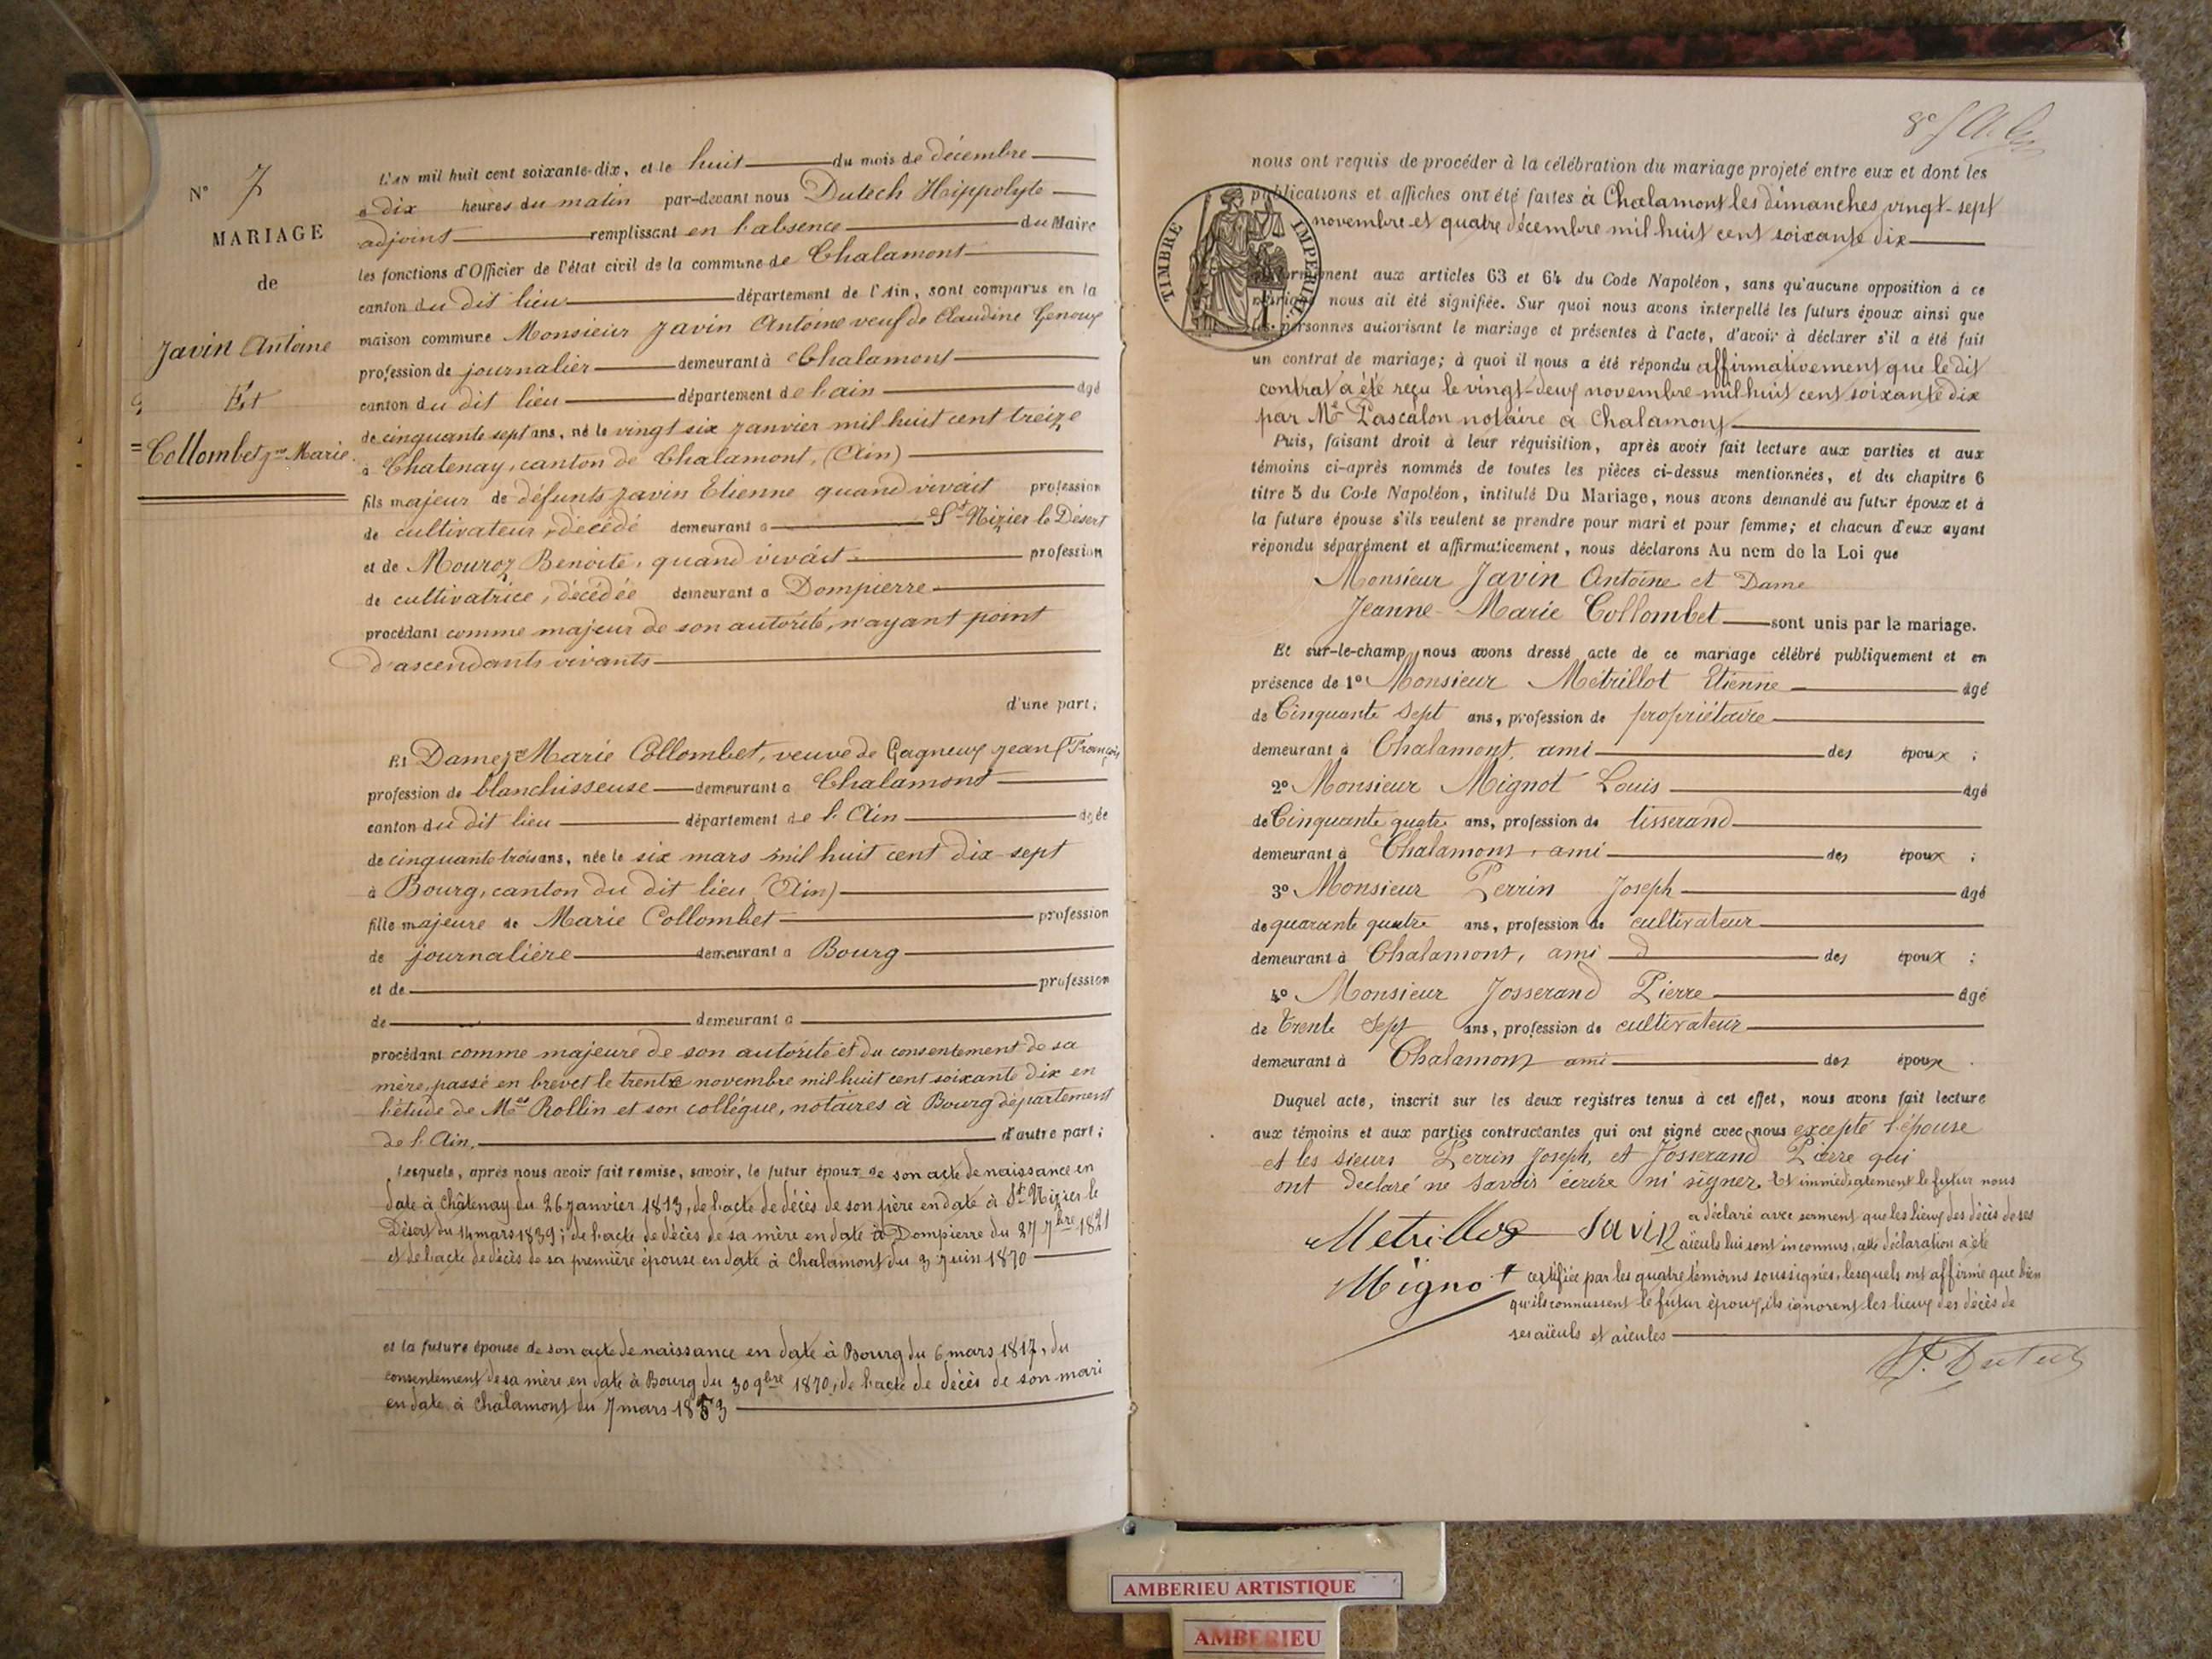 N° 7
MARIAGE
de
Javin Antoine
Et
Collombet jne Marie
L'AN mil huit cent soixante-dix, et le huit du mois de décembre
à dix heures du matin par-devant nous Dutech Hippolyte
adjoint remplissant en l'absence du Maire
les fonctions d'Officier de l'état civil de la commune de Chalamont
canton du dit lieu département de l'Ain, sont comparus en la
maison commune Monsieur Javin Antoine veuf de Claudine Genoux
profession de journalier demeurant à Chalamont
canton du dit lieu département de l'ain âgé
de cinquante sept ans, né le vingt six janvier mil huit cent treize
à Chatenay, canton de Chalamont, (Ain)
fils majeur de défunts Javin Etienne quand vivait profession
de cultivateur, décédé demeurant à St Nizier le Désert
et de Mouroz Benoite, quand vivait profession
de cultivatrice, décédée demeurant à Dompierre
procédant comme majeur de son autorité, n'ayant point
d'ascendants vivants
d'une part;
Et Dame jne Marie Collombet, veuve de Gagneux jean François
profession de blanchisseuse demeurant à Chalamont
canton du dit lieu département de l'Ain âgée
de cinquante trois ans, née le six mars mil huit cent dix sept
à Bourg, canton du dit lieu (Ain)
fille majeure de Marie Collombet profession
de journalière demeurant à Bourg
et de profession
de demeurant à
procédant comme majeure de son autorité et du consentement de sa
mère, passé en brevet le trente novembre mil huit cent soixante dix en
l'étude de Mes Rollin et son collègue, notaires à Bourg département
de l'Ain. d'autre part;
Lesquels, après nous avoir fait remise, savoir, le futur époux de son acte de naissance en
date à Châtenay du 26 janvier 1813, de l'acte de décès de son père en date à St Nizier le
Désert du 14 mars 1839; de l'acte de décès de sa mère en date à Dompierre du 27 7bre 1821
et de l'acte de décès de sa première épouse en date à Chalamont du 3 juin 1870
et la future épouse de son acte de naissance en date à Bourg du 6 mars 1817, du
consentement de sa mère en date à Bourg du 30 9bre 1870, de l'acte de décès de son mari
en date à Chalamont du 7 mars 1853
nous ont requis de procéder à la célébration du mariage projeté entre eux et dont les
publications et affiches ont été faites à Chalamont les dimanches vingt-sept
novembre et quatre décembre mil huit cent soixante dix
TIMBRE IMPERIAL
conformément aux articles 63 et 64 du Code Napoléon, sans qu'aucune opposition à ce
mariage nous ait été signifiée. Sur quoi nous avons interpellé les futurs époux ainsi que
les personnes autorisant le mariage et présentes à l'acte, d'avoir à déclarer s'il a été fait
un contrat de mariage; à quoi il nous a été répondu affirmativement que le dit
contrat a été reçu le vingt-deux novembre mil huit cent soixante dix
par Me Pascalon notaire à Chalamont
Puis, faisant droit à leur réquisition, après avoir fait lecture aux parties et aux
témoins ci-après nommés de toutes les pièces ci-dessus mentionnées, et du chapitre 6
titre 5 du Code Napoléon, intitulé Du Mariage, nous avons demandé au futur époux et à
la future épouse s'ils veulent se prendre pour mari et pour femme; et chacun d'eux ayant
répondu séparément et affirmativement, nous déclarons Au nom de la Loi que
Monsieur Javin Antoine et Dame
Jeanne-Marie Collombet sont unis par le mariage.
Et sur-le-champ, nous avons dressé acte de ce mariage célébré publiquement et en
présence de 1° Monsieur Métrillot Etienne âgé
de Cinquante Sept ans, profession de propriétaire
demeurant à Chalamont, ami des époux ;
2° Monsieur Mignot Louis âgé
de Cinquante quatre ans, profession de tisserand
demeurant à Chalamont, ami des époux ;
3° Monsieur Perrin Joseph âgé
de quarante quatre ans, profession de cultivateur
demeurant à Chalamont, ami d des époux ;
4° Monsieur Josserand Pierre âgé
de trente Sept ans, profession de cultivateur
demeurant à Chalamont ami des époux .
Duquel acte, inscrit sur les deux registres tenus à cet effet, nous avons fait lecture
aux témoins et aux parties contractantes qui ont signé avec nous excepté l'épouse
et les sieurs Perrin Joseph, et Josserand Pierre qui
ont declaré ne savoir écrire ni signer. Et immédiatement le futur nous
a déclaré avec serment que les lieux des décès de ses
Metrillot Javin aïeuls lui sont inconnus, cette déclaration a été
Mignot certifiée par les quatre témoins soussignés, lesquels ont affirmé que bien
qu'ils connussent le futur époux, ils ignorent les lieux des décès de
ses aïeuls et aïeules
H. Dutech
AMBERIEU ARTISTIQUE
AMBERIEU